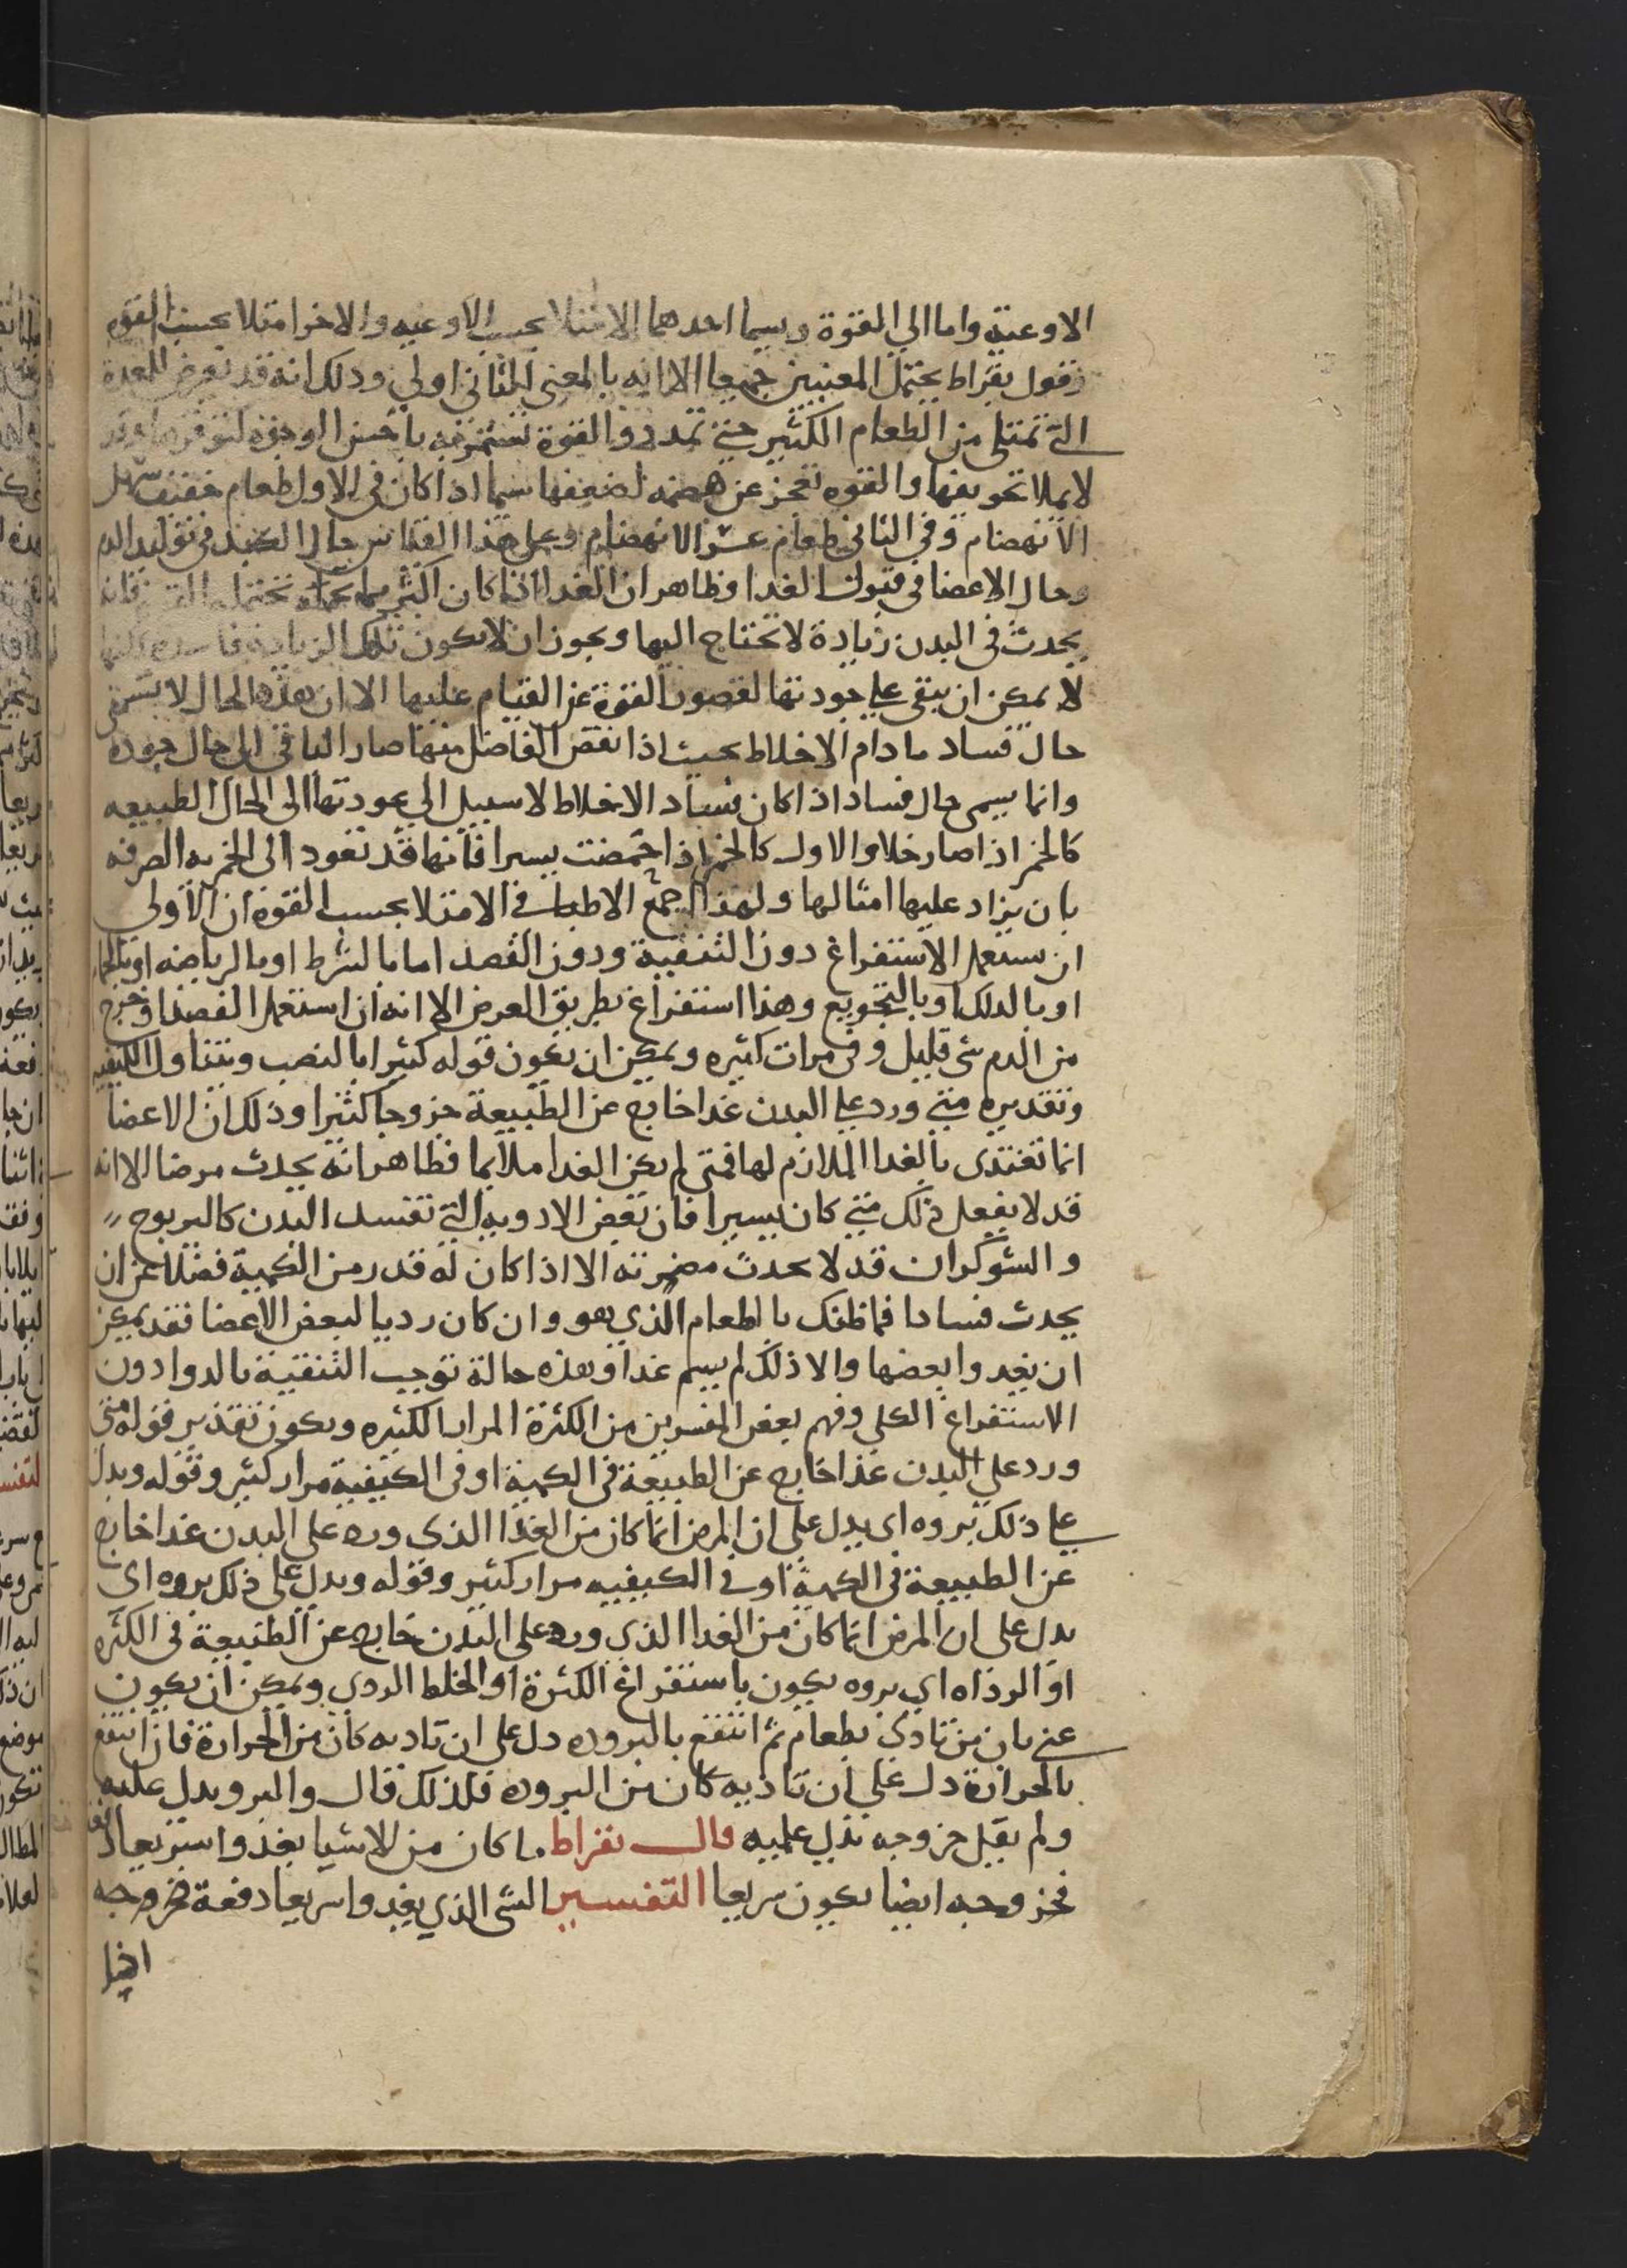 الاوعية واما الي القوة ويسما احدهما الامتلا بحسب الاوعيه والاخر امتلا بحسب القوه
فقول بقراط يحتمل المعنيين جميعا الا انه بالمعنى الثاني اولي وذلك انه قد تعرض للمعدة
التي تمتلي من الطعام الكثير حتي تمدد والقوة تستمريه باحسن الوجوه لتوفرها وقد
لا يملا تجويفها والقوه تعجز عن هضمه لضعفها سيما اذا كان في الاول طعام خفيف سهل
الانهضام وفي الثاني طعام عسر الانهضام وعلي هذا القياس حال الكبد في توليد الدم
وحال الاعضا في قبول الغدا وظاهر ان الغدا اذا كان اكثر مما تحتمله القوة فانه
يحدث في البدن زيادة لا تحتاج اليها ويجوز ان لا يكون تلك الزيادة فاسده لكنها
لا يمكن ان يبقى علي جودتها لقصور القوة عن القيام عليها الا ان هذه الحال لا يسمى
حال فساد ما دام الاخلاط بحيث اذا نقص الفاضل منها صار الباقي الي حال جوده
وانما يسمى حال فساد اذا كان فساد الاخلاط لا سبيل الي عودتها الى الحال الطبيعه
كالخمر اذا صار خلا والاول كالخمر اذا حمضت يسيرا فانها قد تعود الى الخمريه الصرفه
بان يزاد عليها امثالها ولهذا اجمع الاطبا في الامتلا بحسب القوة ان الاولى
ان ستعمل الاستفراغ دون التنقية ودون الفصد اما بالشرط او بالرياضه او بالحمام
او بالدلك او بالتجويع وهذا استفراغ بطريق العرض الا انه ان استعمل الفصد اخرج
من الدم شي قليل وفي مرات كثيره ويمكن ان يكون قوله كثيرا بالنصب ويتناول الكيفيه
وتقديره متي ورد علي البدن غدا خارج عن الطبيعة خروجا كثيرا وذلك ان الاعضا
انما تغتدى بالغدا الملازم لها فمتى لم يكن الغدا ملايما فظاهر انه يحدث مرضا الا انه
قد لا يفعل ذلك متي كان يسيرا فان بعض الادويه التي تفسد البدن كاليربوح
والشوكران قد لا يحدث مضرته الا اذا كان له قدر من الكمية فضلا عن ان
يحدث فسادا فما ظنك بالطعام الذي هو وان كان رديا لبعض الاعضا فقد يمكن
ان يغدوا بعضها والا ذلك لم يسم غدا وهذه حالة توجب التنقية بالدوا دون
الاستفراغ الكلي وفهم بعض المفسرين من الكثرة المرار الكثيره ويكون تقدير قوله متى
ورد علي البدن غذا خارج عن الطبيعة في الكمية او في الكيفية مرار كثير وقوله ويدل
علي ذلك بروه اي يدل علي ان المرض انما كان من الغذا الذي ورد على البدن غدا خارج
عن الطبيعة في الكمية او في الكيفيه مرار كثير وقوله ويدل علي ذلك بروه اي
يدل على ان المرض انما كان من الغدا الذي ورد على البدن خارج عن الطبيعة في الكثره
او الرداه اي بروه يكون باستفراغ الكثرة او الخلط الردي ويمكن ان يكون
عني بان من تادى بطعام ثم انتفع بالبروده دل على ان تاديه كان من الحرارة فان انتفع
بالحرارة دل علي ان تاذيه كان من البروده فلذلك قال والبرو يدل عليه
ولم يقل خروجه يدل عليه قال بقراط ما كان من الاشيا يغذوا سريعا دفعة
فخروجه ايضا يكون سريعا التفسير الشي الذي يغدوا سريعا دفعة فخروجه
ايضا